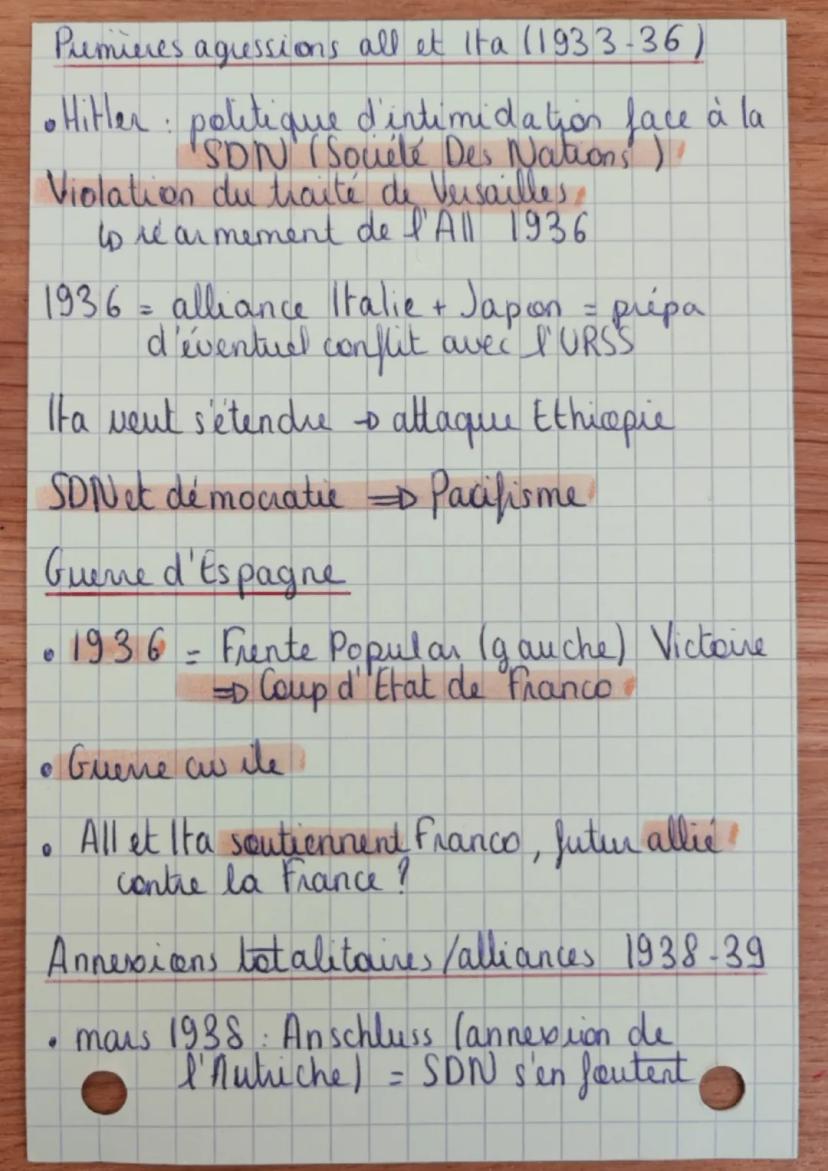 Premières agressions all et Ita (1933-36)
• Hitler : politique d'intimidation face à la
SDN (Société Des Nations)
Violation du traité de Versailles
↳ réarmement de l'All 1936
1936 = alliance Italie + Japon = prépa
d'éventuel conflit avec l'URSS
Ita veut s'étendre → attaque Ethiopie
SDN et démocratie ⇒ Pacifisme
Guerre d'Espagne
• 1936 = Frente Popular (gauche) Victoire
⇒ Coup d'Etat de Franco
• Guerre civile
• All et Ita soutiennent Franco, futur allié
contre la France ?
Annexions totalitaires/alliances 1938-39
• mars 1938 : Anschluss (annexion de
l'Autriche) = SDN s'en foutent